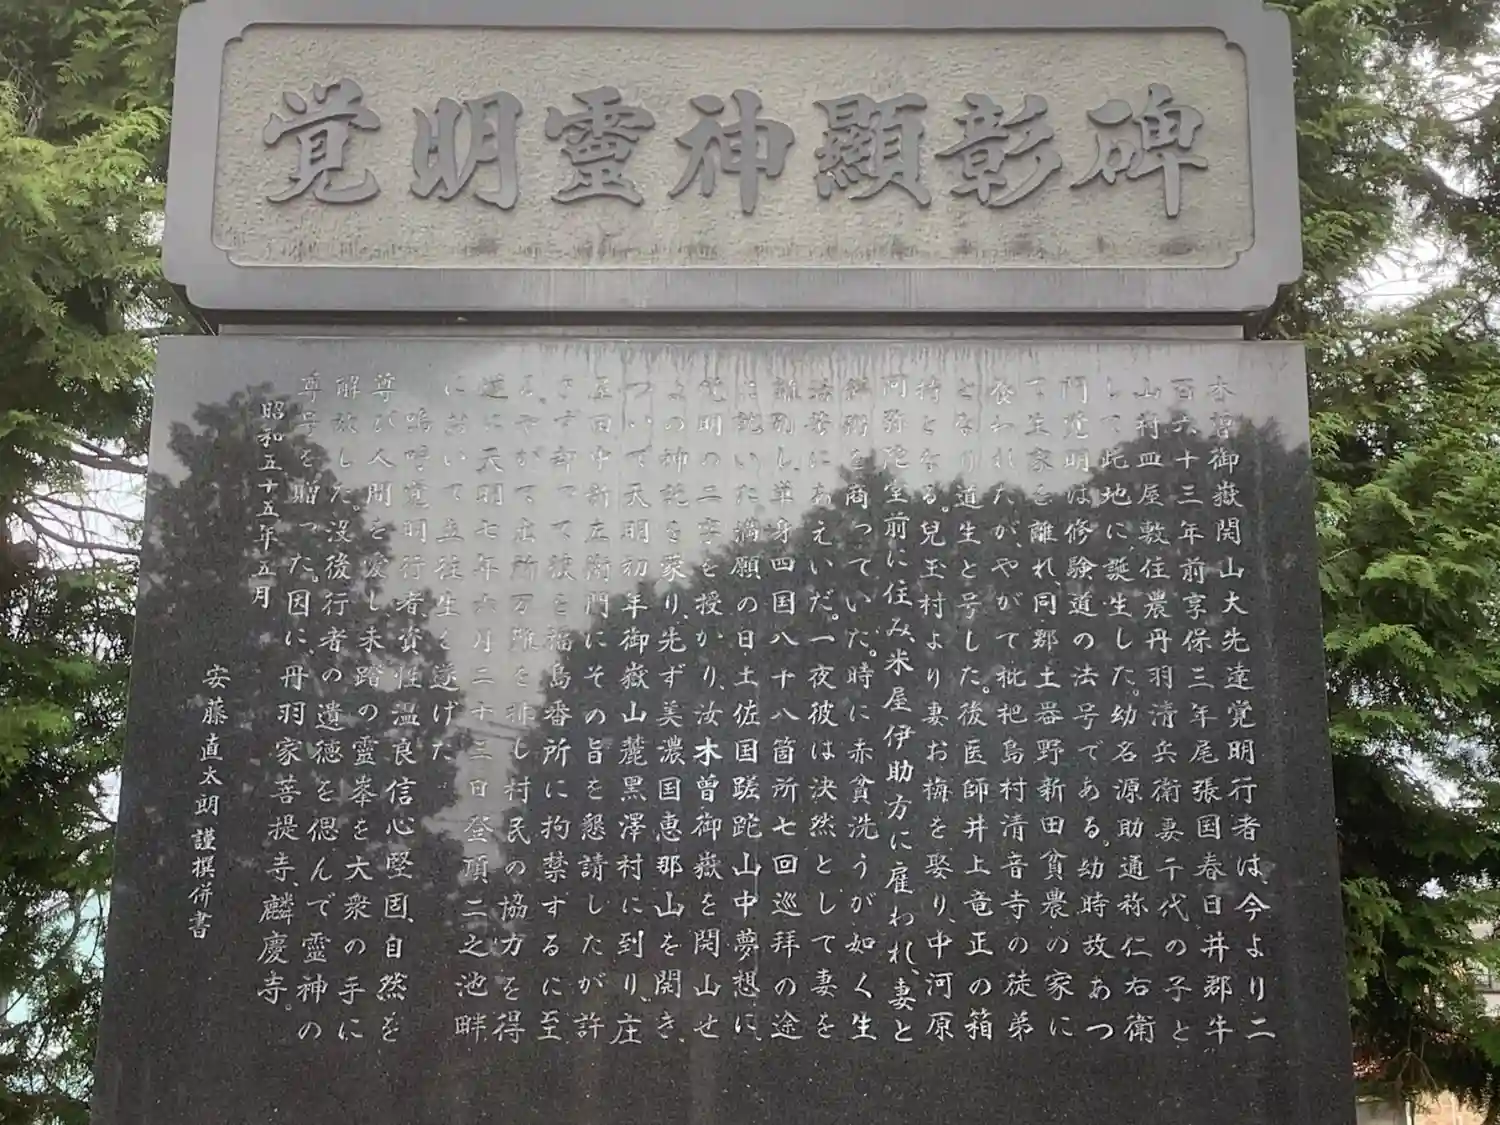 覚明霊神顕彰碑
木曽御嶽開山大先達覚明行者は、今より二
百六十三年前享保三年尾張国春日井郡牛
山村皿屋敷住農丹羽清兵衛妻千代の子と
して此地に誕生した。幼名源助通称仁右衛
門覚明は修験道の法号である。幼時故あつ
て生家を離れ、同郡土器野新田貧農の家に
養われたが、やがて枇杷島村清音寺の徒弟
となり道生と号した。後医師井上竜正の箱
持となる。兒玉村より妻お梅を娶り、中河原
阿弥陀堂前に住み米屋伊助方に雇われ、妻と
餅粥を商っていた。時に赤貧洗うが如く生
活苦にあえいだ。一夜彼は決然として妻を
離別し、単身四国八十八箇所七回巡拝の途
に就いた。満願の日土佐国蹉跎山中夢想に、
覚明の二字を授かり、汝木曽御嶽を開山せ
よの神託を蒙り、先ず美濃国恵那山を開き、
ついで天明初年御嶽山麓黒澤村に到り、庄
屋田中新左衛門にその旨を懇請したが許
さず却つて彼を福島番所に拘禁するに至
る。やがて出所万難を排し村民の協力を得
遂に天明七年六月二十三日登頂二之池畔
に於いて立往生を遂げた
嗚呼覚明行者資性温良信心堅固、自然を
尊び人間を愛し未踏の霊峯を大衆の手に
解放した。没後行者の遺徳を偲んで霊神の
尊号を贈った。因に、丹羽家菩提寺、麟慶寺。
昭和五十五年五月
安藤直太朗謹撰併書